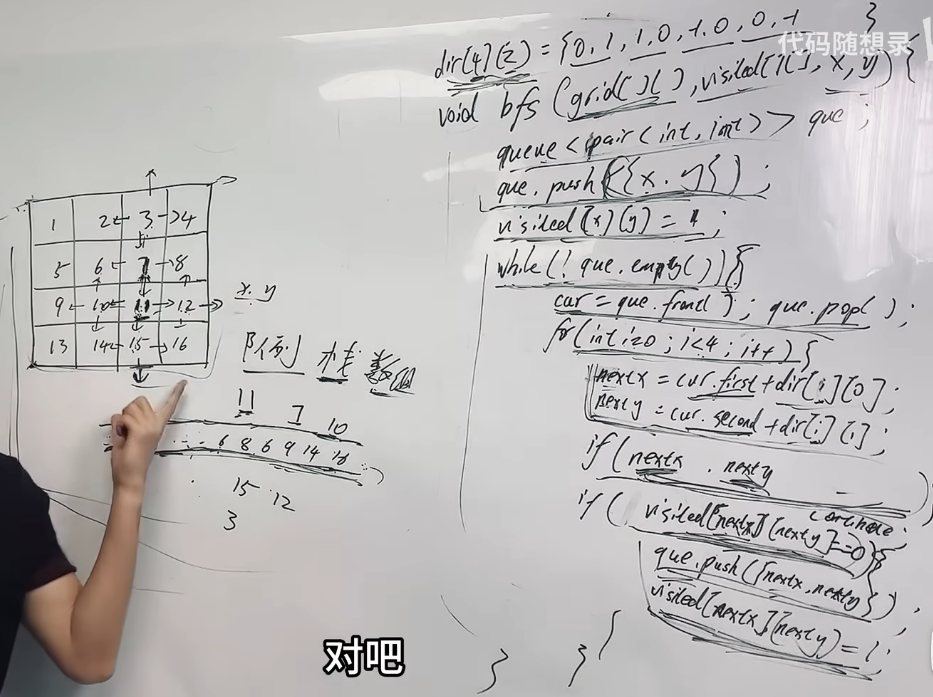 代码随想录
dir[4][2] = {0,1,1,0,-1,0,0,-1}
void bfs (grid[][], visited[][], x, y) {
queue<pair<int, int>> que;
que.push({x, y});
visited[x][y] = 1;
while(!que.empty()){
cur = que.front(); que.pop();
for(int i=0; i<4; i++){
nextx = cur.first + dir[i][0];
nexty = cur.second + dir[i][1];
if (nextx . nexty
continue;
if ( visited[nextx][nexty]==0){
que.push({nextx, nexty});
visited[nextx][nexty] = 1;
} } }
1 2 3 4
5 6 7 8
9 10 11 12
13 14 15 16
x. y
队列 栈 数组
11 7 10
6 8 6 9 14 16
15 12
3
对吧